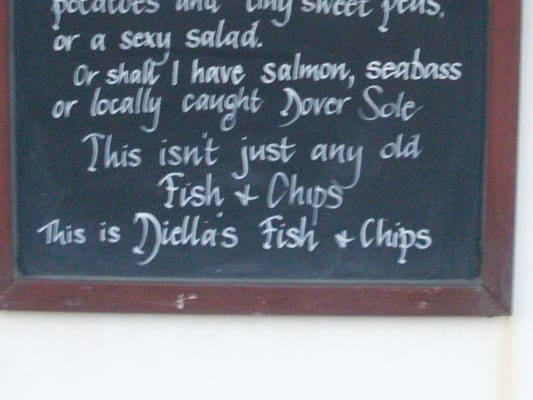 potatoes and tiny sweet peas,
or a sexy salad.
Or shall I have salmon, seabass
or locally caught Dover Sole
This isn't just any old
Fish & Chips
This is Diella's Fish & Chips